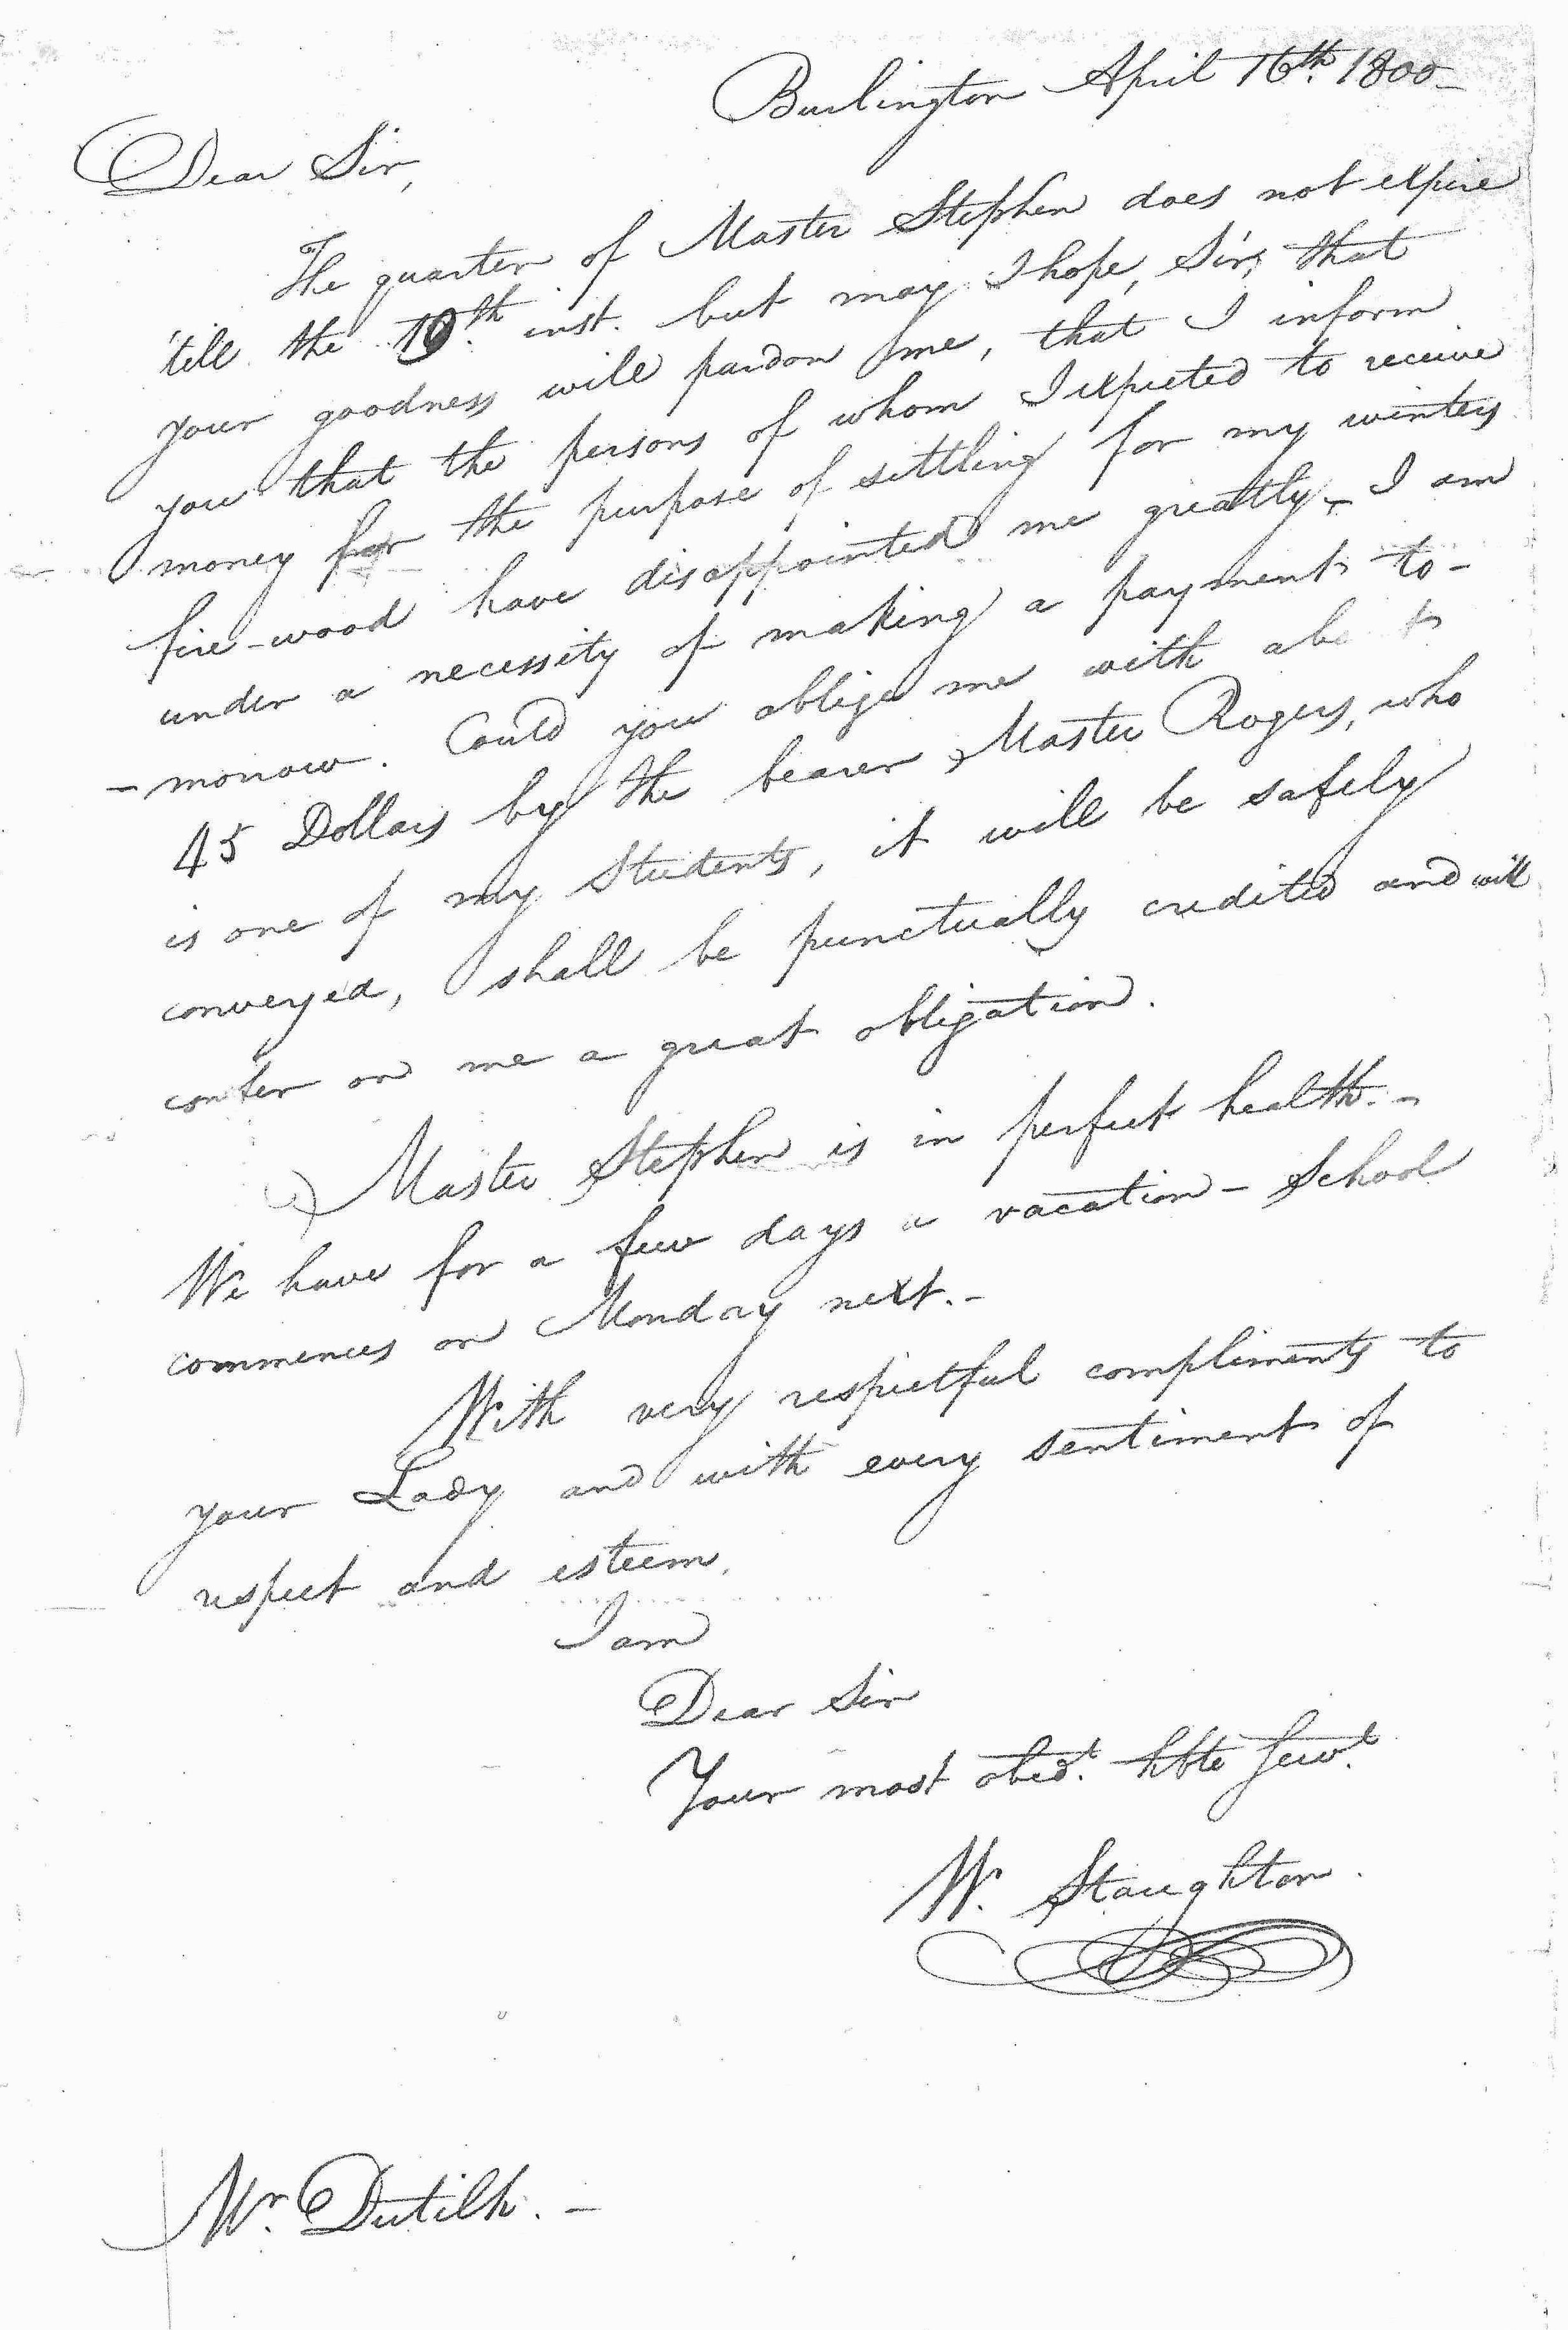 Burlington April 16th. 1800_
Dear Sir,
The quarter of Master Stephen does not expire
'till the 19th. inst. but may I hope, Sir, that
your goodness will pardon me, that I inform
you that the persons of whom I expected to receive
money for the purpose of settling for my winters
fire-wood have disappointed me greatly - I am
under a necessity of making a payment to-
-morrow. Could you oblige me with
45 Dollars by the bearer Master Rogers, who
is one of my Students, it will be safely
conveyed, shall be punctually credited and will
confer on me a great obligation.
Master Stephen is in perfect health.-
We have for a few days a vacation - School
commences on Monday next.-
With very respectful compliments to
your Lady and with every sentiment of
respect and esteem,
I am
Dear Sir
Your most obedt. hble servt.
W. Staughton.
Mr. Dutilh.-